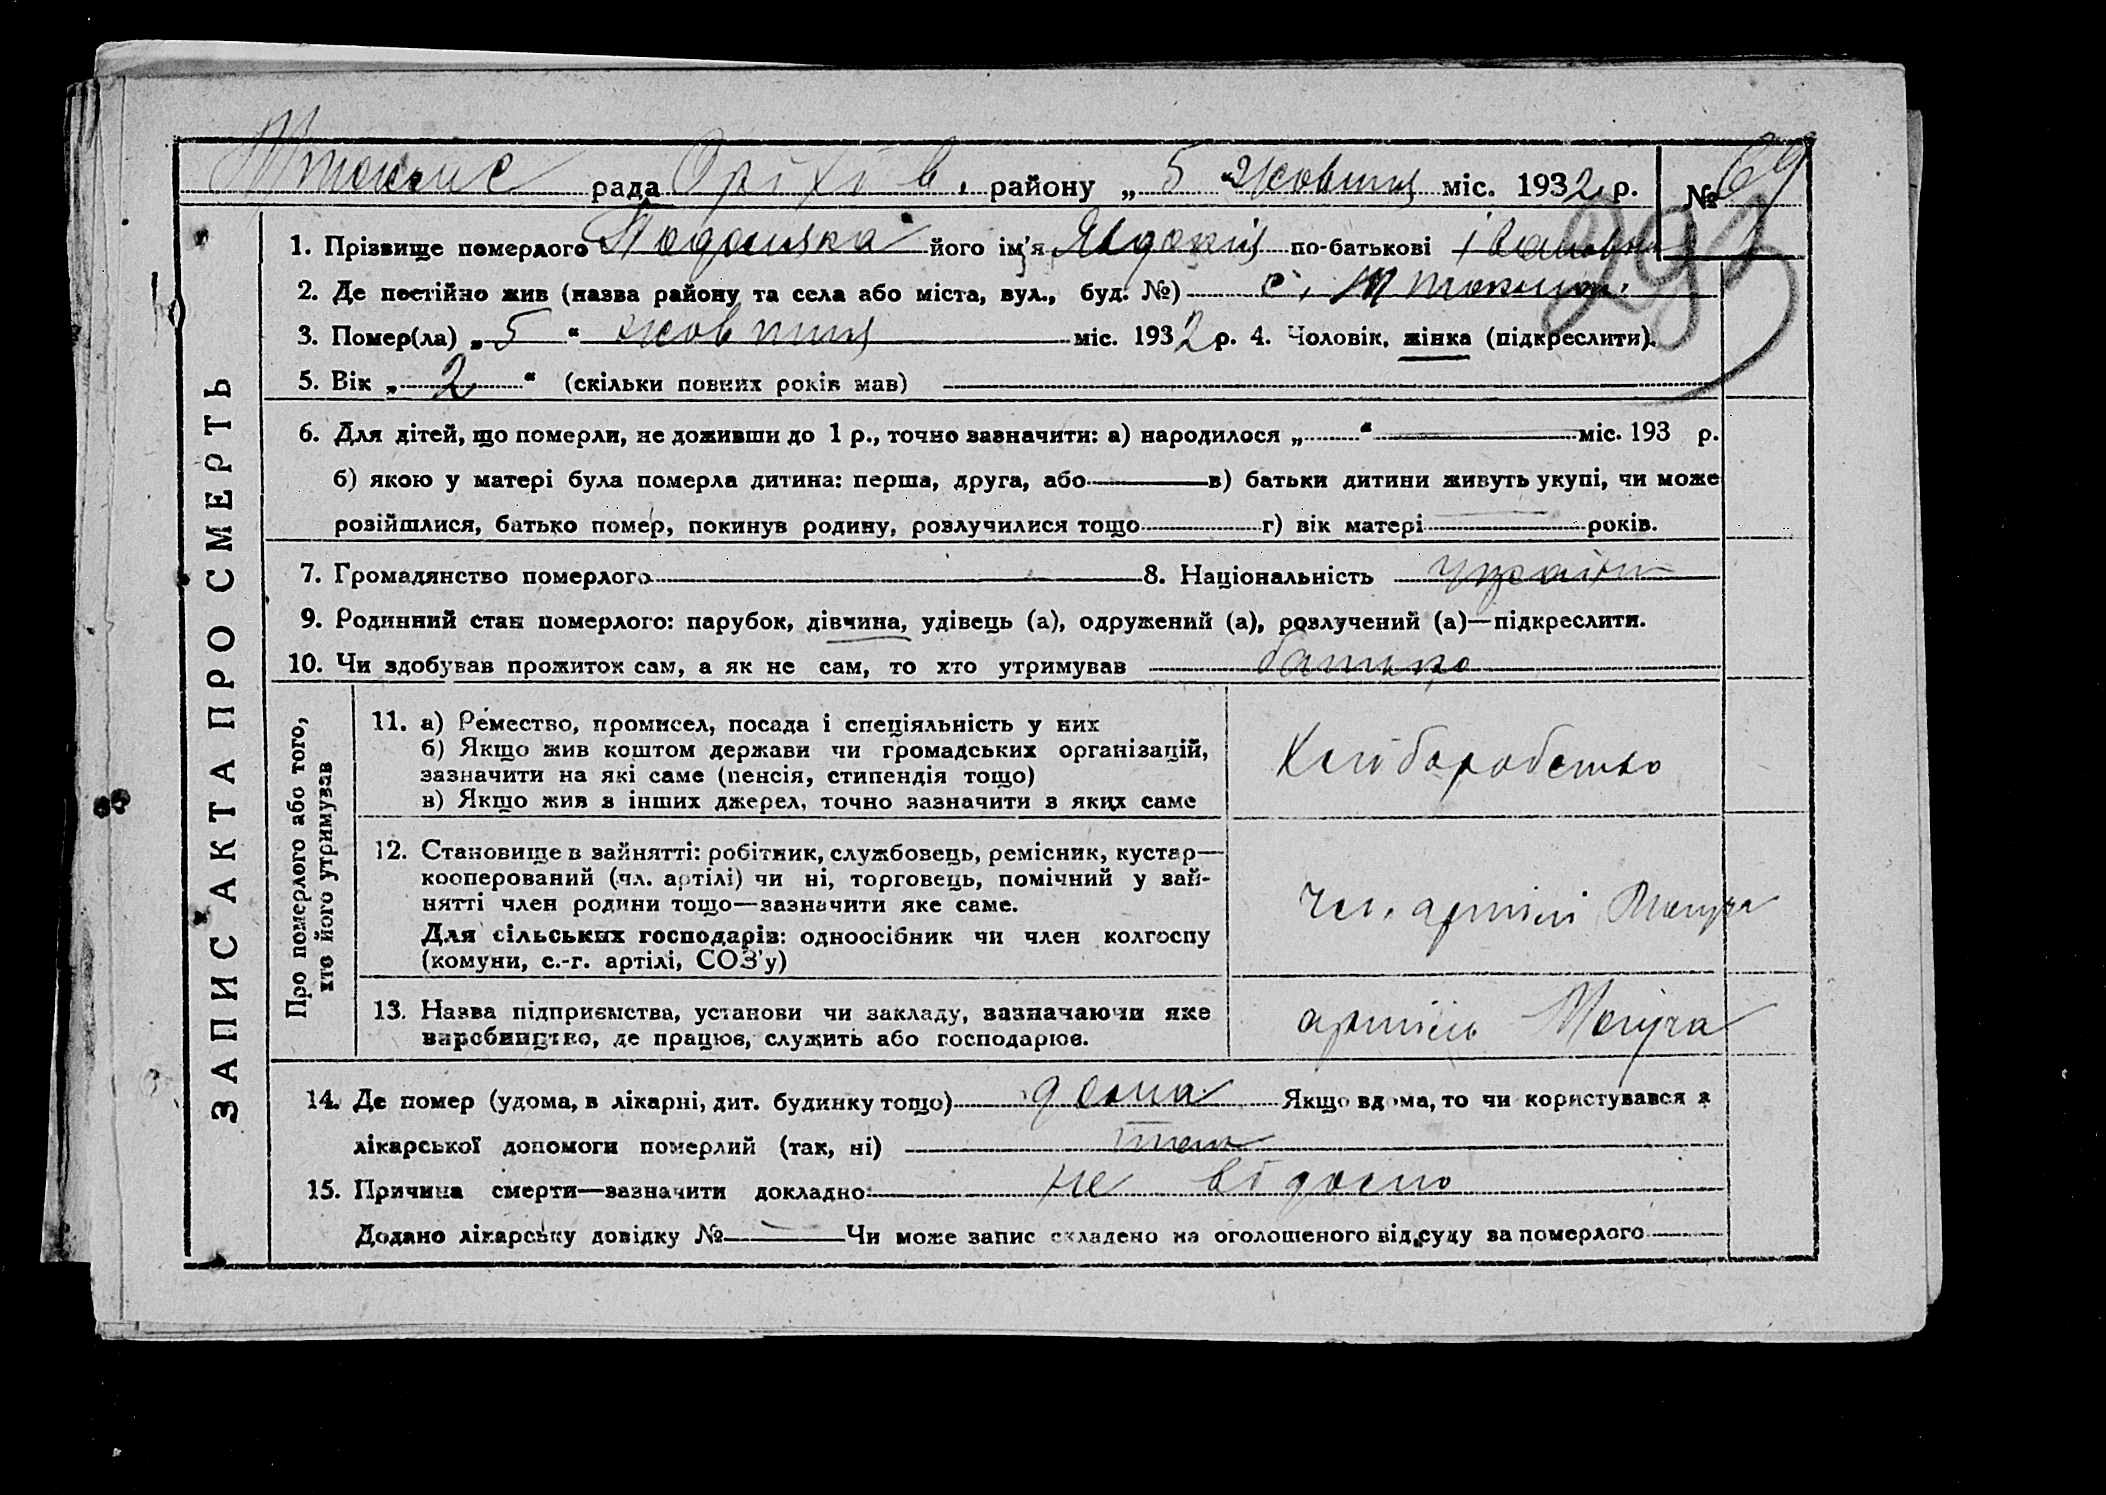 рада Оріхів. району „ 5 “ жовтня міс. 1932 р. № 69
293
ЗАПИС АКТА ПРО СМЕРТЬ
1. Прізвище померлого його ім’я Явдокія по-батькові івановна
2. Де постійно жив (назва району та села або міста, вул., буд. №) с.
3. Помер(ла) „ 5 “ жовтня міс. 1932 р. 4. Чоловік, жінка (підкреслити).
5. Вік „ 2 “ (скільки повних років мав)
6. Для дітей, що померли, не доживши до 1 р., точно зазначити: а) народилося „ “ міс. 193 р.
б) якою у матері була померла дитина: перша, друга, або в) батьки дитини живуть укупі, чи може
розійшлися, батько помер, покинув родину, розлучилися тощо г) вік матері років.
7. Громадянство померлого 8. Національність україн
9. Родинний стан померлого: парубок, дівчина, удівець (а), одружений (а), розлучений (а)—підкреслити.
10. Чи здобував прожиток сам, а як не сам, то хто утримував батько
Про померлого або того,
хто його утримував
11. а) Ремество, промисел, посада і спеціяльність у них
б) Якщо жив коштом держави чи громадських організацій,
зазначити на які саме (пенсія, стипендія тощо)
в) Якщо жив з інших джерел, точно зазначити з яких саме
Хліборобство
12. Становище в зайнятті: робітник, службовець, ремісник, кустар—
кооперований (чл. артілі) чи ні, торговець, помічний у зай-
нятті член родини тощо—зазначити яке саме.
Для сільських господарів: одноосібник чи член колгоспу
(комуни, с.-г. артілі, СОЗ’у)
чл. артілі
13. Назва підприємства, установи чи закладу, зазначаючи яке
виробництво, де працює, служить або господарює.
артіль
14. Де помер (удома, в лікарні, дит. будинку тощо) дома Якщо вдома, то чи користувався з
лікарської допомоги померлий (так, ні)
15. Причина смерти—зазначити докладно: не відомо
Додано лікарську довідку № Чи може запис складено на оголошеного від суду за померлого